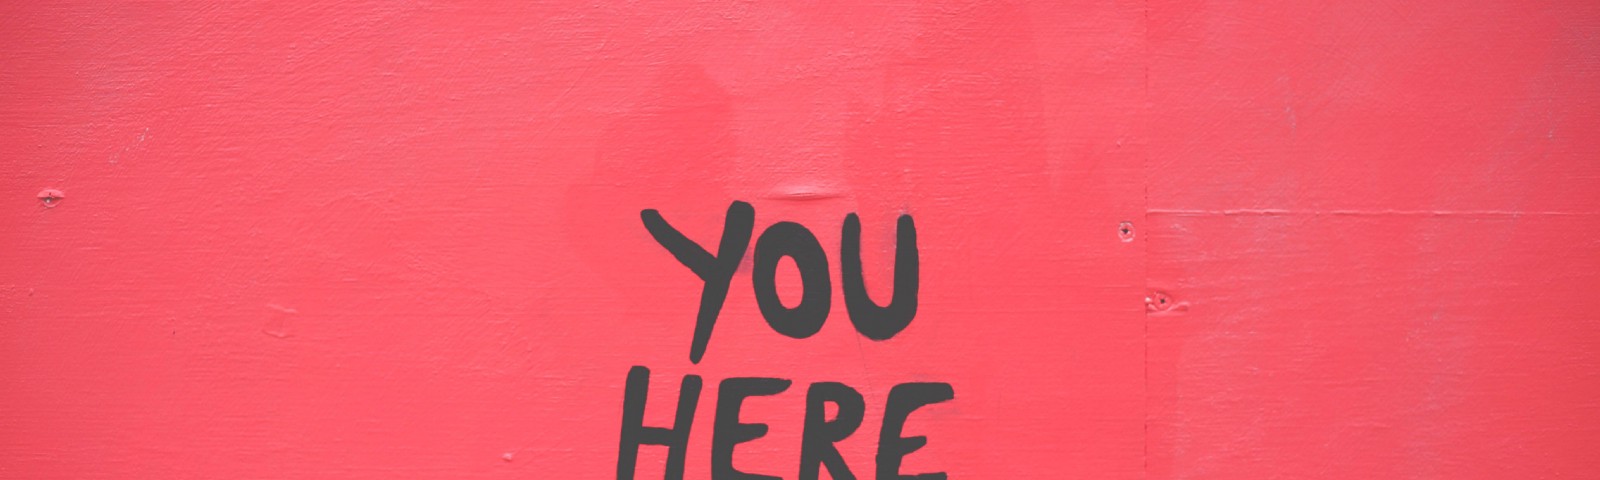 YOU
HERE